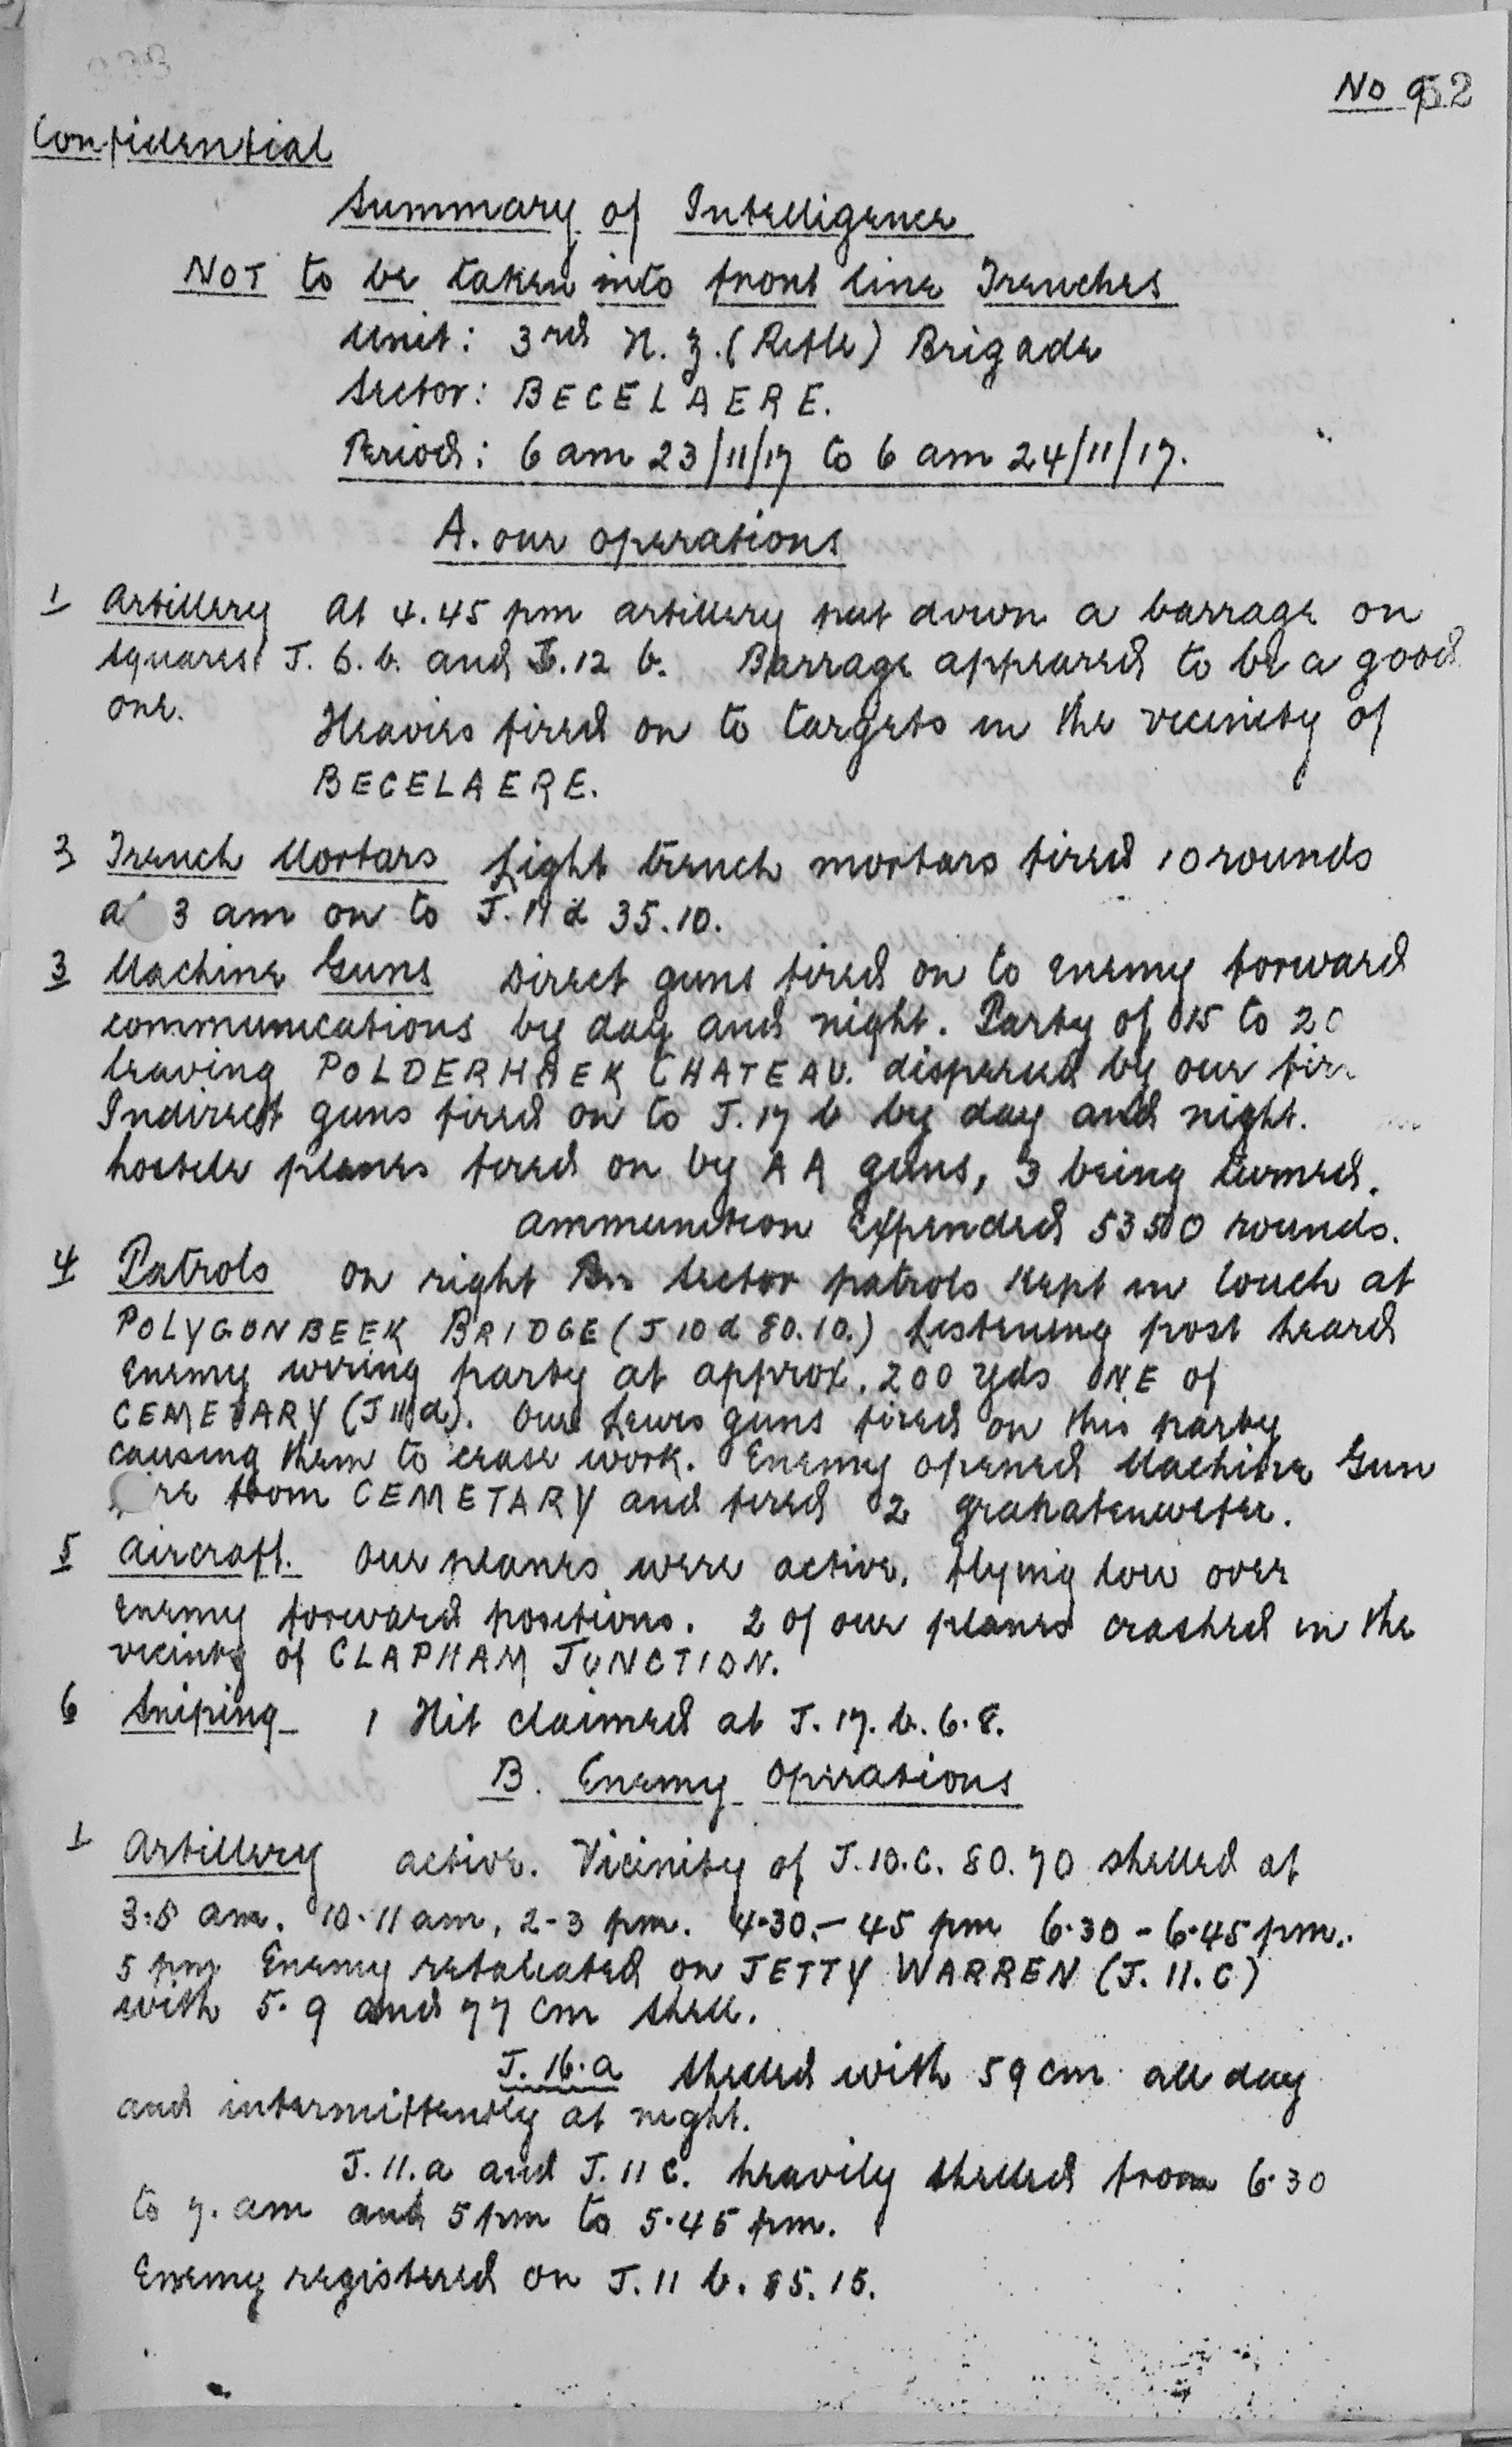 No 952
Confidential
Summary of Intelligence
NOT to be taken into front line Trenches
Unit: 3rd N.Z. (Rifle) Brigade
Sector: BECELAERE.
Period: 6 am 23/11/17 to 6 am 24/11/17.
A. our operations
1 Artillery At 4.45 pm artillery put down a barrage on
squares J. 6. b. and J.12 b. Barrage appeared to be a good
one. Heavies fired on to targets in the vicinity of
BECELAERE.
3 Trench Mortars Light trench mortars fired 10 rounds
3 am on to J. 11 d 35.10.
3 Machine Guns Direct guns fired on to enemy forward
communications by day and night. Party of 15 to 20
leaving POLDERHAEK CHATEAU. dispersed by our
Indirect guns fired on to J.17 b by day and night.
hostile planes fired on by AA guns, 3 being turned.
ammunition expended 53500 rounds.
4 Patrols On right Bn Sector patrols kept in touch at
POLYGONBEEK BRIDGE (J 10 d 80.10.) Listening post heard
enemy wiring party at approx. 200 yds NE of
CEMETARY (J 11 d). Our Lewis guns fired on this party
causing them to cease work. Enemy opened Machine Gun
from CEMETARY and fired 2 granatenwerfer.
5 Aircraft. Our planes were active, flying low over
enemy forward positions. 2 of our planes crashed in the
vicinity of CLAPHAM JUNCTION.
6 Sniping 1 Hit claimed at J.17.b.6.8.
B. Enemy Operations
1 Artillery active. Vicinity of J.10.C. 80.70 shelled at
3.5 am. 10-11 am, 2-3 pm. 4.30-45 pm 6.30-6.45 pm.
5 pm Enemy retaliated on JETTY WARREN (J.11.C)
with 5.9 and 77 cm shell.
J.16.a shelled with 59 cm all day
and intermittently at night.
J.11.a and J.11 c. heavily shelled from 6.30
to 7. am and 5 pm to 5.45 pm.
Enemy registered on J.11 b. 85.15.